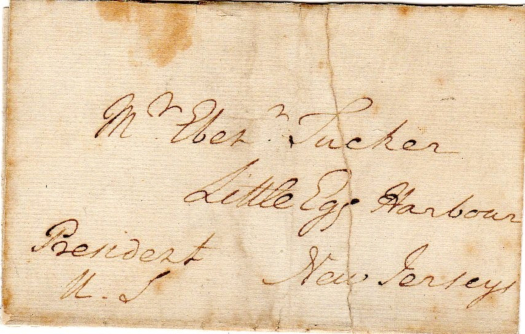 Mr. Ebenr. Tucker
Little Egg Harbour
New Jersey
President
U. S